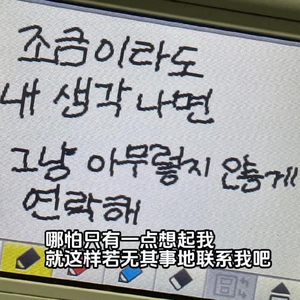 조금이라도
내 생각 나면
그냥 아무렇지 않게
연락해
哪怕只有一点想起我
就这样若无其事地联系我吧